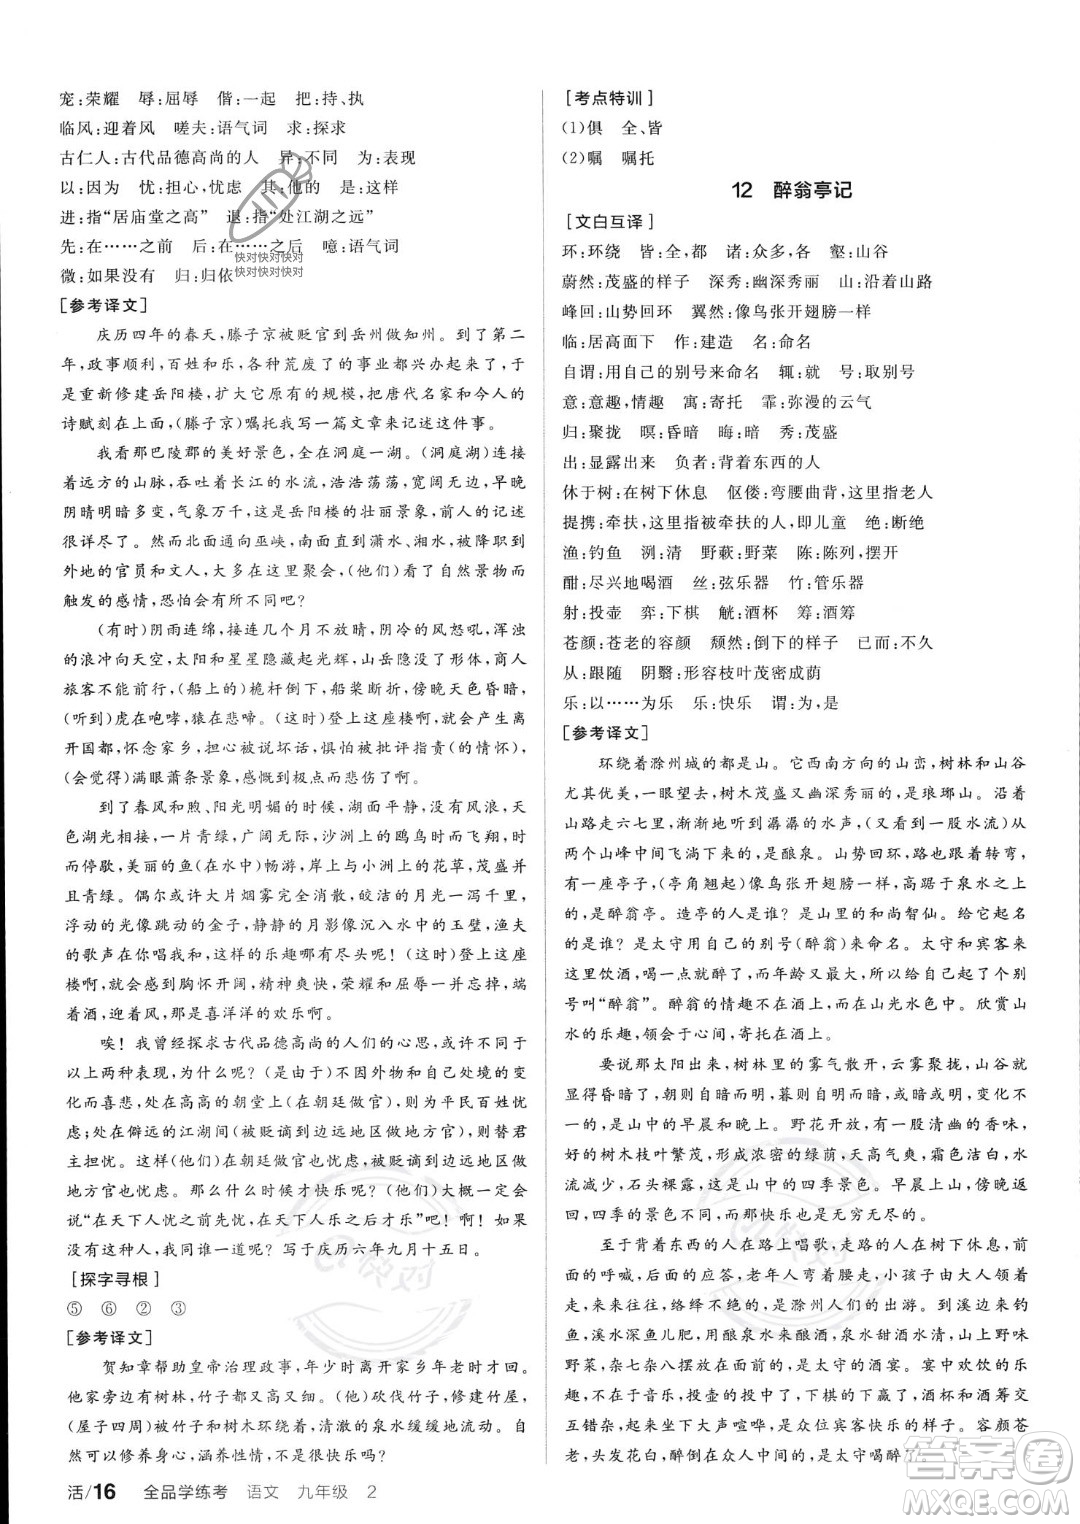 宠:荣耀 辱:屈辱 偕:一起 把:持、执
临风:迎着风 嗟夫:语气词 求:探求
古仁人:古代品德高尚的人 异:不同 为:表现
以:因为 忧:担心,忧虑 其:他的 是:这
进:指“居庙堂之高” 退:指“处江湖之远”
先:在……之前 后:在……之后 噫:语气词
微:如果没有 归:归依
[参考译文]
庆历四年的春天,滕子京被贬官到岳州做知州。到了第二
年,政事顺利,百姓和乐,各种荒废了的事业都兴办起来了,于
是重新修建岳阳楼,扩大它原有的规模,把唐代名家和今人的
诗赋刻在上面,(滕子京)嘱托我写一篇文章来记述这件事。
我看那巴陵郡的美好景色,全在洞庭一湖。(洞庭湖)连接
着远方的山脉,吞吐着长江的水流,浩浩荡荡,宽阔无边,早晚
阴晴明暗多变,气象万千,这就是岳阳楼的壮丽景象,前人的记
述很详尽了。然而北面通向巫峡,南面直到潇水、湘水,被降职到
外地的官员和文人,大多在这里聚会,(他们)看了自然景物而
触发的感情,恐怕会有所不同吧?
(有时)阴雨连绵,接连几个月不放晴,阴冷的风怒吼,浑浊
的浪冲向天空,太阳和星星隐藏起光辉,山岳隐没了形体,商人
旅客不能前行,(船上的)桅杆倒下,船桨断折,傍晚天色昏暗,
(听到)虎在咆哮,猿在悲啼。(这时)登上这座楼,就会产生离
开国都,怀念家乡,担心被说坏话,惧怕被批评指责(的情怀),
(会觉得)满眼萧条景象,感慨到极点而悲伤了啊。
到了春风和煦、阳光明媚的时候,湖面平静,没有风浪,天
色湖光相接,一片青绿,广阔无际,沙洲上的鸥鸟时而飞翔,时
而停歇,美丽的鱼(在水中)畅游,岸上与小洲上的花草,茂盛并
且青绿。偶尔或许大片烟雾完全消散,皎洁的月光一泻千里,
浮动的光像跳动的金子,静静的月影像沉入水中的玉璧,渔夫
的歌声在你唱我和,这样的乐趣哪有尽头呢!(这时)登上这座
楼,就会感到胸怀开阔,精神爽快,荣耀和屈辱一并忘了,端着
酒,迎着风,那是喜洋洋的欢乐啊。
唉!我曾经探求古代品德高尚的人们的心思,或许不同于以
上两种表现,为什么呢?(是由于)不因外物和自己处境的变化
而喜悲,处在高高的朝堂上(在朝廷做官),就为平民百姓担忧,
处在僻远的江湖间(被贬谪到边远地区做官),就替君
主担忧。这样(他们)在朝廷做官也担忧,(被贬谪)到边远
地方做官也担忧。那么什么时候才快乐呢?(他们)大概一定会
说“在天下人忧之前先忧,在天下人乐之后才乐”吧!唉!如果
没有这种人,我同谁一道呢?写于庆历六年九月十五日。
[探字寻根]
⑤ ⑥ ② ③
[参考译文]
贺知章帮助皇帝治理政事,年少时离开家乡年老时才回。
他家旁边有树林,竹子都又高又细。(他)砍伐竹子修建竹屋,
(屋子四周)被竹子和树木环绕着,清澈的泉水缓缓地流动。自
然可以修养身心,涵养性情,不是很快乐吗?
活/16 全品学练考 语文 九年级 2
[考点特训]
(1)俱 全、皆
(2)嘱 嘱托
12 醉翁亭记
[文白互译]
环:环绕 皆:全,都 诸:众多,各 壑:山谷
蔚然:茂盛的样子 深秀:幽深秀丽 山:沿着山路
峰回:山势回环 翼然:像鸟张开翅膀一样
临:居高面下 作:建造 名:命名
自谓:用自己的别号来命名 辄:就 号:取别号
意:意趣,情趣 寓:寄托 霏:弥漫的云气
归:聚拢 暝:昏暗 晦:暗 秀:茂盛
出:显露出来 负者:背着东西的人
休于树:在树下休息 伛偻:弯腰曲背,这里指老人
提携:牵扶,这里指被牵扶的人,即儿童 绝:断绝
渔:钓鱼 洌:清 野蔌:野菜 陈:陈列,摆开
酣:尽兴地喝酒 丝:弦乐器 竹:管乐器
射:投壶 弈:下棋 觥:酒杯 筹:酒筹
苍颜:苍老的容颜 颓然:倒下的样子 已而:不久
从:跟随 阴翳:形容枝叶茂密成荫
乐:以……为乐 乐:快乐 谓:为,是
[参考译文]
环绕着滁州城的都是山。它西南方向的山峦,树林和山谷
尤其优美,一眼望去,树木茂盛又幽深秀丽的,是琅琊山。沿着
山路走六七里,渐渐地听到潺潺的水声,(又看到一股水流)从
两个山峰中间飞淌下来的,是酿泉。山势回环,道路跟着转弯,
有一座亭子,(亭角翘起)像鸟张开翅膀一样,高踞于泉水之上
的,是醉翁亭。造亭的人是谁?是山里的和尚智仙。给它起名
的人是谁?是太守用自己的别号(醉翁)来命名。太守和宾客来
这里饮酒,喝一点就醉了,而年龄又最大,所以给自己起了个别
号叫“醉翁”。醉翁的情趣不在酒上,而在山光水色中。欣赏山
水的乐趣,领会于心间,寄托在酒上。
要说那太阳出来,树林里的雾气散开,云雾聚拢,山谷就
显得昏暗了,早晨则自暗而明,暮则自明而暗,或暗或明,变化不
一,是山中的早晨和晚上。野花开放,有一股清幽的香味,
好的树木枝叶繁茂,形成浓密的绿荫,天高气爽,霜色洁白,溪水
滑落,石头裸露,这是山中的四季景色。早晨上山,傍晚返
回,四季的景色不同,那快乐也是无穷无尽的。
至于背着东西的人在路上唱歌,走路的人在树下休息,前面
的呼喊,后面的应答,老年人弯着腰走,小孩子由大人领
着走,来来往往、络绎不绝的,是滁州人们的出游。到溪边钓
鱼,溪水深鱼儿肥,用酿泉来酿酒,泉水甜酒水清,山上野味
野菜,杂七杂八地摆放在面前的,是太守的酒宴。宴中欢饮的乐
趣,不在于音乐,投壶的投中了,下棋的下赢了,酒杯和酒筹交
互错杂,人们时起时坐大声喧哗,是众位宾客快乐的样子。容颜苍
老,头发花白,醉倒在众人中间的,是太守喝醉了。